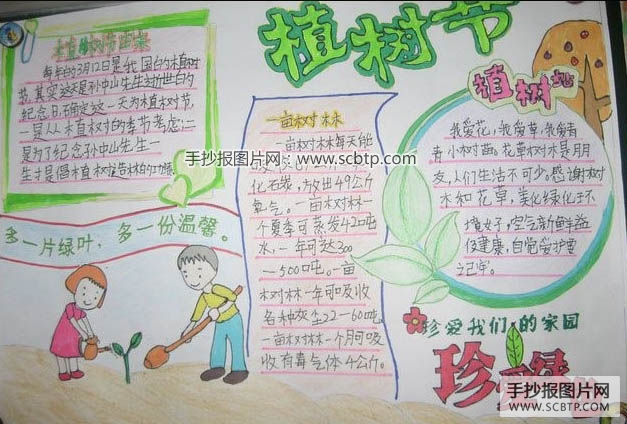 植树节
植树节由来
每年的3月12日是我国的植树
节,其实这是孙中山先生逝世的
纪念日确定这一天为植树节,
一是从植树的季节考虑;二
是为了纪念孙中山先生一
生才是倡植树造林的功德
多一片绿叶,多一份温馨。
一亩树林
一亩树林每天能
化石炭,放出49公斤
氧气。一亩树林一
个夏季可蒸发42吨
水,一年可达300
—500吨。一亩
树林一年可吸收
各种灰尘22—60吨
一亩树林一个月可吸
收有毒气体4公斤。
植树
我爱花,我爱草,我爱青
青小树苗。花草树木是朋
友,人们生活不可少。感谢树
木和花草,美化绿化环
境好,空气新鲜益
健康,自觉爱护要
记牢。
珍爱我们的家园
珍
绿
手抄报图片网:www.scbtp.com
手抄报图片网
WWW.SCBTP.COM